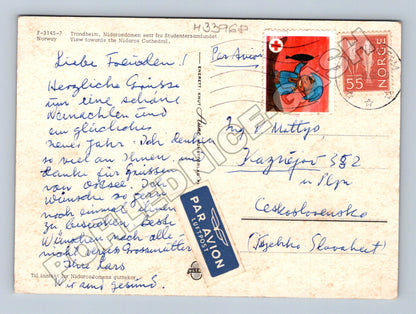 F-3145-7 Trondheim, Nidarosdomen sett fra Studentersamfundet
Norway View towards the Nidaros Cathedral.
H3396P
Liebe Freunden!
Herzliche Grüsse
nur eine schöne
Weinachten und
ein glückliches
neues Jahr. Ich denke
so viel an Ihnen, und
danke für Grüssen
von Ostsee. Ich
wünsche so gern
noch einmal Ihnen
zu besuchen. Beste
Wünschen nach alle-
nicht vergess Grossmutter
Ihre Lars
Wir sind gesund.
Til inntekt for Nidarosdomens
Par Avion
NORGE
55
PAR AVION
LUFTPOST
Ing V Mottyo,
Kaznějov 382
u Plzn
Československo
(Tsjekko Slovakeit)
POHLEDNICE-SBERATELSTVI